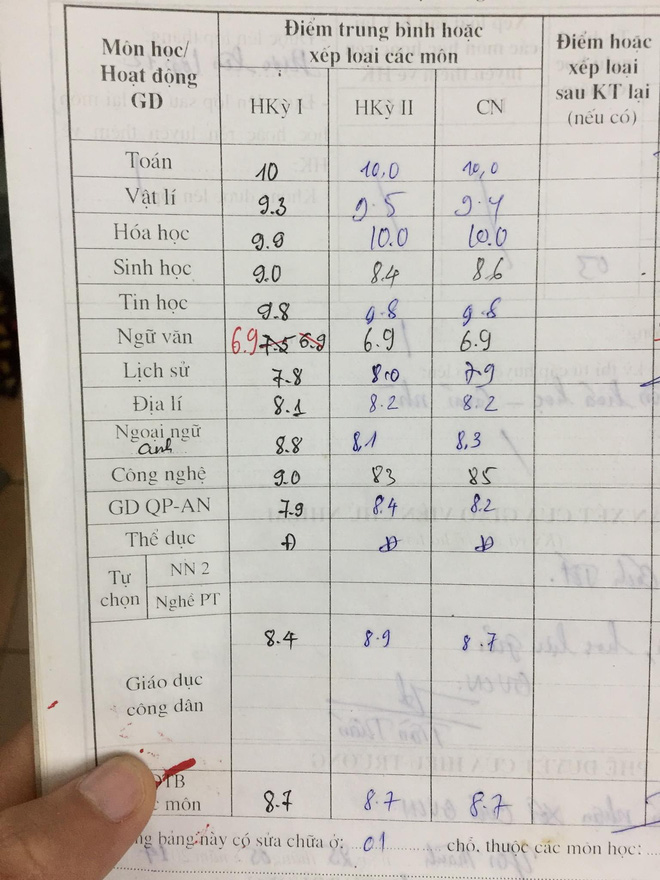 Môn học/ Hoạt động GD
Điểm trung bình hoặc xếp loại các môn
Điểm hoặc xếp loại sau KT lại (nếu có)
HKỳ I HKỳ II CN
Toán 10 10,0 10,0
Vật lí 9.3 9.5 9.4
Hóa học 9.9 10.0 10.0
Sinh học 9.0 8.4 8.6
Tin học 9.8 9.8 9.8
Ngữ văn 6.9 7.5 6.9 6.9 6.9
Lịch sử 7.8 8.0 7.9
Địa lí 8.1 8.2 8.2
Ngoại ngữ 8.8 8,1 8,3
anh
Công nghệ 9.0 83 85
GD QP-AN 7.9 8.4 8.2
Thể dục Đ Đ Đ
Tự chọn
NN 2
Nghề PT
8.4 8.9 8.7
Giáo dục công dân
ĐTB
môn 8.7 8.7 8.7
bảng này có sửa chữa ở: 01 chỗ, thuộc các môn học: